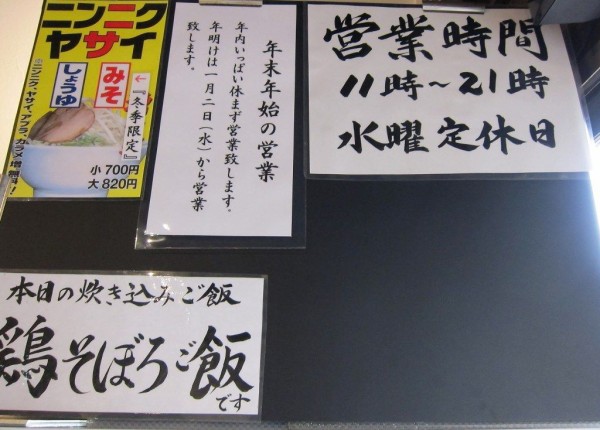 ニンニク
ヤサイ
しょうゆ
みそ
←『冬季限定』
※ニンニク、ヤサイ、アブラ、カラメ増無料!
小 700円
大 820円
年末年始の営業
年内いっぱい休まず営業致します。
年明けは一月二日(水)から営業
致します。
営業時間
11時~21時
水曜定休日
本日の炊き込みご飯
鶏そぼろご飯
です